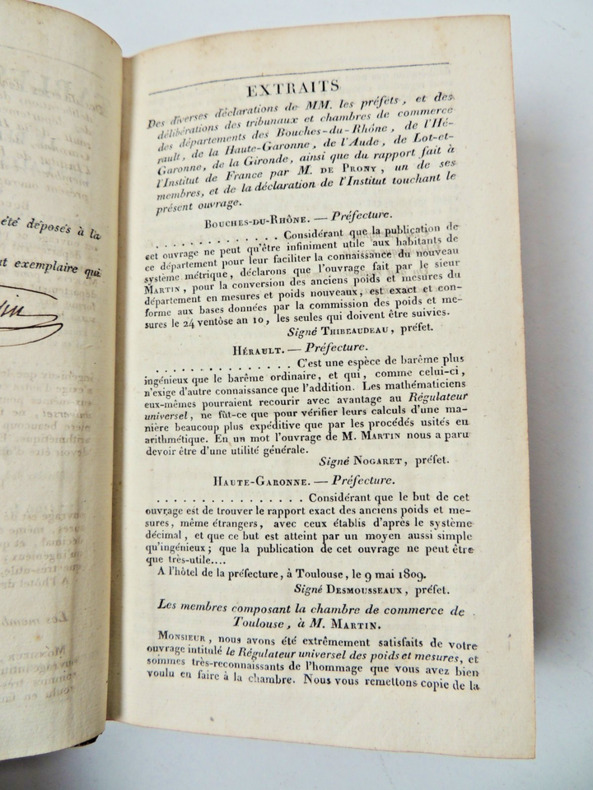 été déposés à la
exemplaire qui
EXTRAITS
Des diverses déclarations de MM. les préfets, et des
délibérations des tribunaux et chambres de commerce
des départemens des Bouches-du-Rhône, de l'Hé-
rault, de la Haute-Garonne, de l'Aude, de Lot-et-
Garonne, de la Gironde, ainsi que du rapport fait à
l'Institut de France par M. DE PRONY, un de ses
membres, et de la déclaration de l'Institut touchant le
présent ouvrage.
BOUCHES-DU-RHÔNE. — Préfecture.
. . . . . . . . . . . . . . Considérant que la publication de
cet ouvrage ne peut qu'être infiniment utile aux habitants de
ce département pour leur faciliter la connaissance du nouveau
système métrique, déclarons que l'ouvrage fait par le sieur
MARTIN, pour la conversion des anciens poids et mesures du
département en mesures et poids nouveaux, est exact et con-
forme aux bases données par la commission des poids et me-
sures le 24 ventôse an 10, les seules qui doivent être suivies.
Signé THIBEAUDEAU, préfet.
HÉRAULT. — Préfecture.
. . . . . . . . . . . . . . . C'est une espèce de barême plus
ingénieux que le barême ordinaire, et qui, comme celui-ci,
n'exige d'autre connaissance que l'addition. Les mathématiciens
eux-mêmes pourraient recourir avec avantage au Régulateur
universel, ne fût-ce que pour vérifier leurs calculs d'une ma-
nière beaucoup plus expéditive que par les procédés usités en
arithmétique. En un mot l'ouvrage de M. MARTIN nous a paru
devoir être d'une utilité générale.
Signé NOGARET, préfet.
HAUTE-GARONNE. — Préfecture.
. . . . . . . . . . . . . . . . Considérant que le but de cet
ouvrage est de trouver le rapport exact des anciens poids et me-
sures, même étrangers, avec ceux établis d'après le système
décimal, et que ce but est atteint par un moyen aussi simple
qu'ingénieux; que la publication de cet ouvrage ne peut être
que très-utile....
A l'hôtel de la préfecture, à Toulouse, le 9 mai 1809.
Signé DESMOUSSEAUX, préfet.
Les membres composant la chambre de commerce de
Toulouse, à M. MARTIN.
MONSIEUR, nous avons été extrêmement satisfaits de votre
ouvrage intitulé le Régulateur universel des poids et mesures, et
sommes très-reconnaissants de l'hommage que vous avez bien
voulu en faire à la chambre. Nous vous remettons copie de la